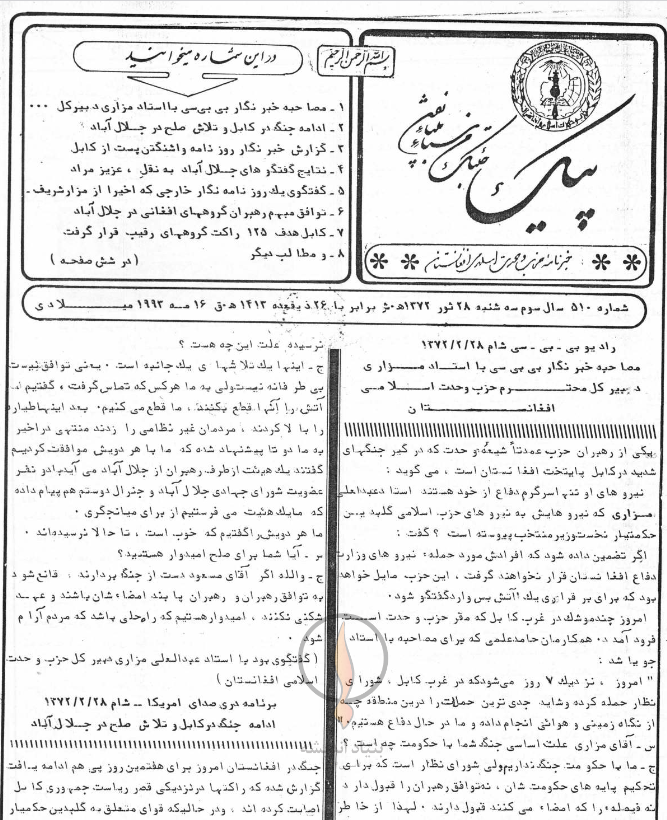 بسم الله الرحمن الرحیم
پیک
خبرنامه حزب وحدت اسلامی افغانستان
در این شماره میخوانید
۱ ـ مصاحبه خبر نگار بی بی سی با استاد مزاری دبیر کل ۰۰۰
۲ ـ ادامه جنگ در کابل و تلاش صلح در جلال آباد
۳ ـ گزارش خبر نگار روز نامه واشنگتن پست از کابل
۴ ـ نتایج گفتگو های جلال آباد به نقل ، عزیز مراد
۵ ـ گفتگوی یك روز نامه نگار خارجی که اخیرا از مزار شریف ـ
۶ ـ توافق مبهم رهبران گروههای افغانی در جلال آباد
۷ ـ کابل هدف ۱۲۵ راکت گروههای رقیب قرار گرفت
۸ ـ و مطالب دیگر
( در شش صفحه )
شماره ۵۱۰ سال سوم سه شنبه ۲۸ ثور ۱۳۷۲ ه ش برابر با ۲۶ ذیقعده ۱۴۱۳ ه ق ۱۶ مه ۱۹۹۳ میلادی
رادیو بی ـ بی ـ سی شام ۱۳۷۲/۲/۲۸
مصاحبه خبر نگار بی بی سی با استاد مزاری
دبیر کل محترم حزب وحدت اسلامی
افغانستان
یکی از رهبران حزب عمدتاً شیعه و حدت که در گیر جنگهای
شدید در کابل پایتخت افغانستان است ، می گوید :
نیرو های او تنها سرگرم دفاع از خود هستند استاد عبدالعلی
مزاری که نیرو هایش به نیرو های حزب اسلامی گلبدین
حکمتیار نخست وزیر منتخب پیوسته است ؟ گفت :
اگر تضمین داده شود که افرادش مورد حمله نیرو های وزارت
دفاع افغانستان قرار نخواهند گرفت ، این حزب مایل خواهد
بود که برای بر قراری یك آتش بس وارد گفتگو شود ۰
امروز چند موشك در غرب کابل که مقر حزب و حدت است
فرود آمد ۰ همکارمان حامد علمی که برای مصاحبه با استاد
جویا شد :
" امروز ، نزدیك ۷ روز میشود که در غرب کابل ، شورای
نظار حمله کرده و شاید جدی ترین حملات را درین منطقه چه
از نگاه زمینی و هوائی انجام داده و ما در حال دفاع هستیم ۰"
س ـ آقای مزاری علت اساسی جنگ شما با حکومت چه است ؟
ج ـ ما با حکومت جنگ نداریم ولی شورای نظار است که برای
تحکیم پایه های حکومت شان ، نه توافق رهبران را قبول دارد
نه فیصله را که امضاء می کنند قبول دارند ۰ لهذا از خاطر
نرسیده علت این چه هست ؟
ج ـ اینها یك تلاشهای یك جانبه است ۰ یعنی توافق نیست
بی طرفانه نیست ولی به ما هر کس که تماس گرفت ، گفتیم
آتش را آنها قطع بکنند ، ما قطع می کنیم ۰ بعد اینها طیاره
را با لا کردند ، مردمان غیر نظامی را زدند منتهی در اخیر
به ما دو تا پیشنهاد شده که ما با هر دویش موافقت کردیم
گفتند یك هیئت از طرف رهبران از جلال آباد می آید با دو نفر
عضویت شورای جهادی جلال آباد و جنرال دوستم هم پیام داده
که ما یك هئیت می فرستیم از برای میانجگری ۰
ما هر دویش را گفتیم که خوب است ، تا حالا نرسیده اند ۰
س ـ آیا شما برای صلح امیدوار هستید ؟
ج ـ والله اگر آقای مسعود دست از جنگ بردارند ، قانع شود
به توافق رهبران و رهبران پابند امضاء شان باشند و عهد
شکنی نکنند ، امیدوار هستیم که راه حلی باشد که مردم آرام
شود ۰
( گفتگوی بود با استاد عبدالعلی مزاری دبیر کل حزب و حدت
اسلامی افغانستان )
برنامه دری صدای امریکا ـ شام ۱۳۷۲/۲/۲۸
ادامه جنگ در کابل و تلاش صلح در جلال آباد
جنگ در افغانستان امروز برای هفتمین روز پی هم ادامه یافت
گزارش شده که راکتها در نزدیکی قصر ریاست جمهوری کابل
اصابت کرده اند ، و در حالیکه قوای متعلق به گلبدین حکمتیار